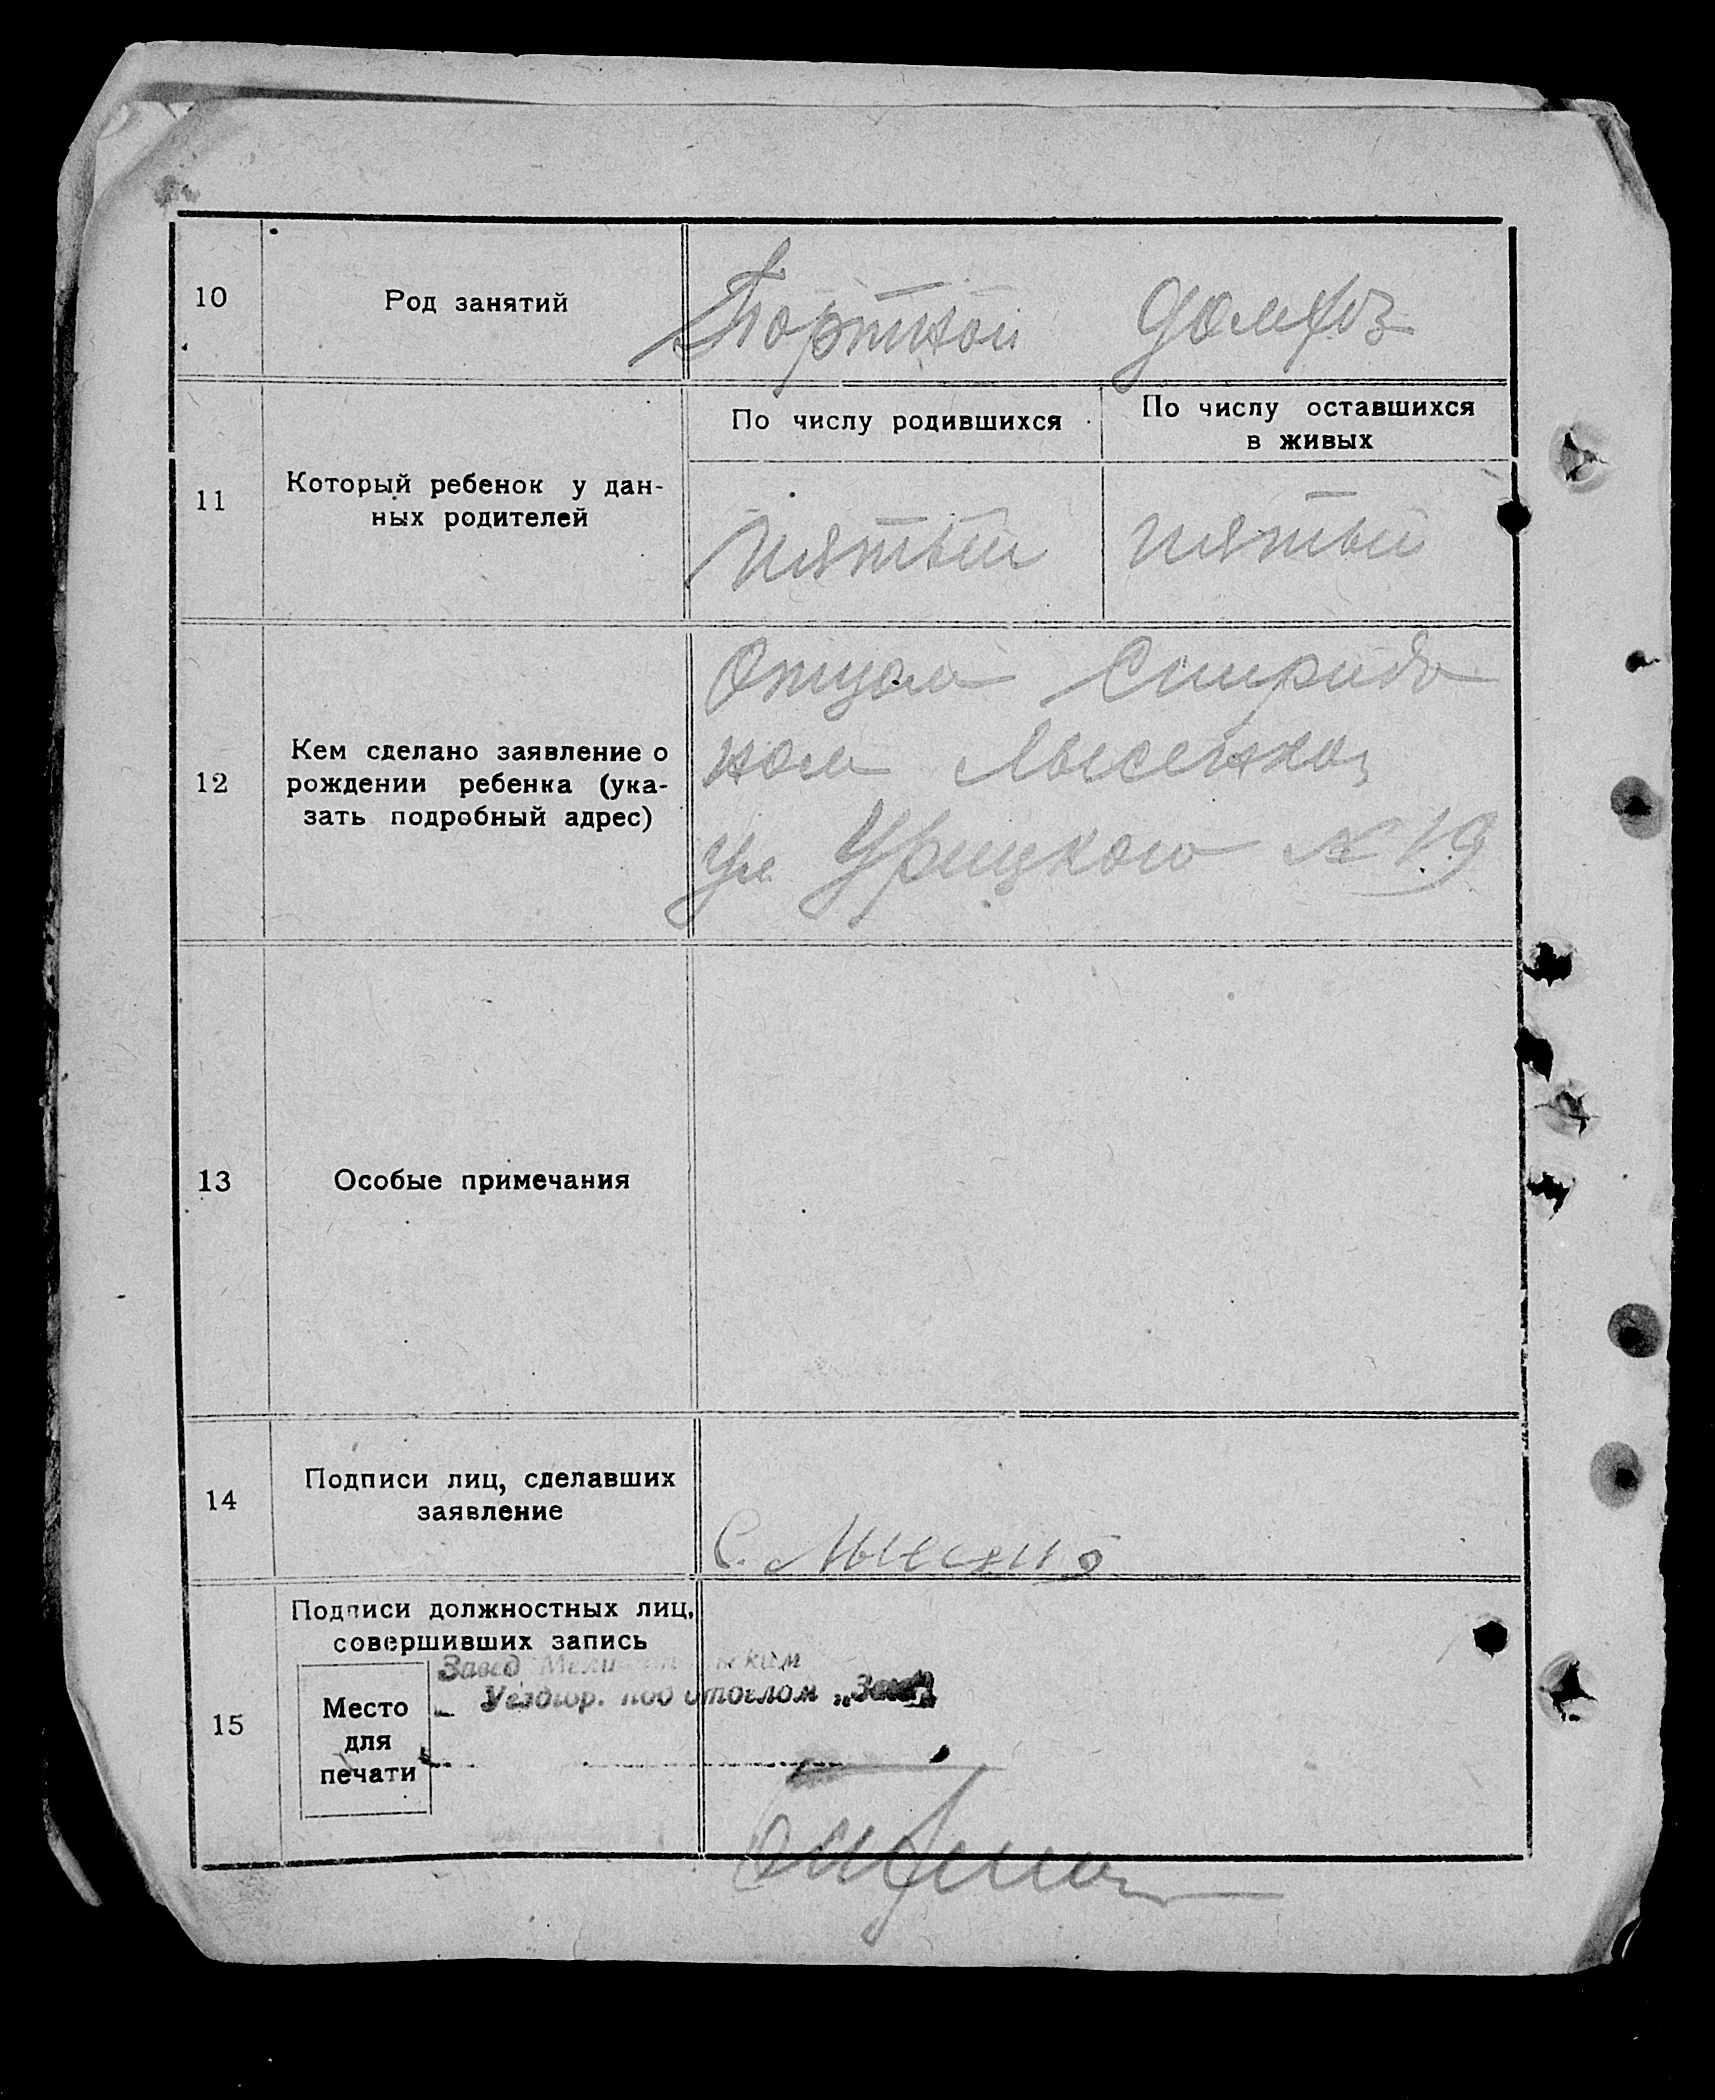 10
Род занятий
Портной домхоз
11
Который ребенок у дан-
ных родителей
По числу родившихся
По числу оставшихся
в живых
пятый
пятый
12
Кем сделано заявление о
рождении ребенка (ука-
зать подробный адрес)
Отцом Спиридо
ном Лысенко,
ул Урицкого № 19
13
Особые примечания
14
Подписи лиц, сделавших
заявление
С.
15
Подписи должностных лиц,
совершивших запись
Место
для
печати
Завед
Уездгор. под отделом